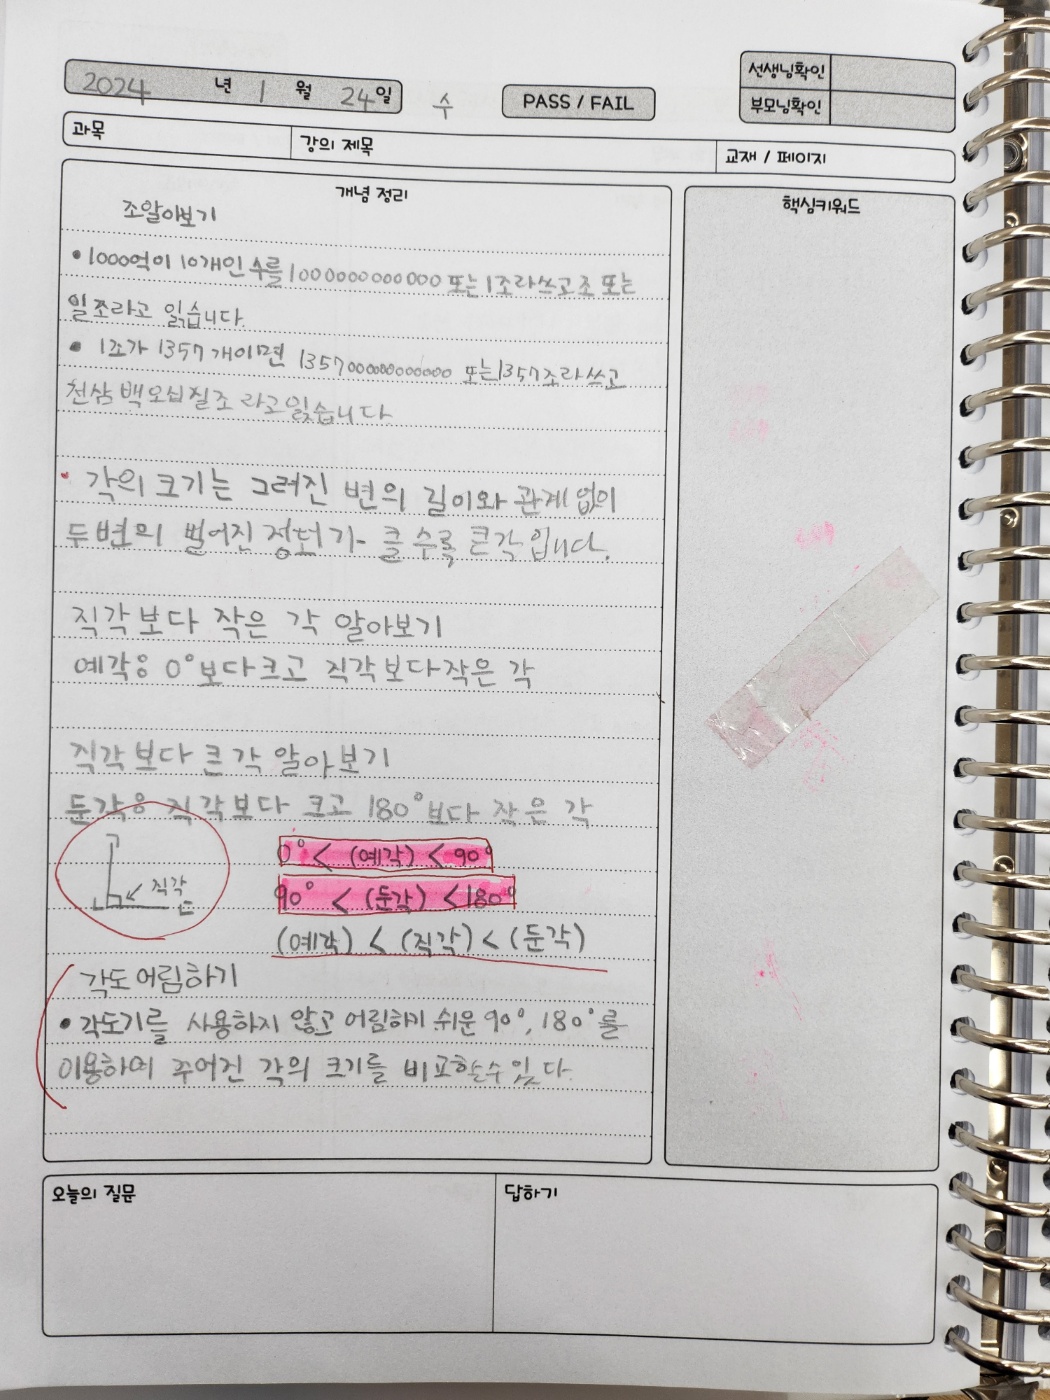 2024 년 1 월 24일 수
PASS / FAIL
선생님확인
부모님확인
과목
강의 제목
교재 / 페이지
개념 정리
핵심키워드
조알아보기
• 1000억이 10개인 수를 1000000000000 또는 1조라쓰고 조 또는
일조라고 읽습니다.
• 1조가 1357개이면 1357000000000000 또는1357조라쓰고
천삼백오십칠조 라고읽습니다
• 각의 크기는 그려진 변의 길이와 관계없이
두변의 벌어진 정도가 클수록 큰각입니다.
직각보다 작은 각 알아보기
예각은 0°보다크고 직각보다작은 각
직각보다 큰각 알아보기
둔각은 직각보다 크고 180°보다 작은 각
직각
0° < (예각) < 90°
90° < (둔각) < 180°
(예각) < (직각) < (둔각)
각도 어림하기
• 각도기를 사용하지 않고 어림하기 쉬운 90°, 180°를
이용하여 주어진 각의 크기를 비교할수있다.
오늘의 질문
답하기